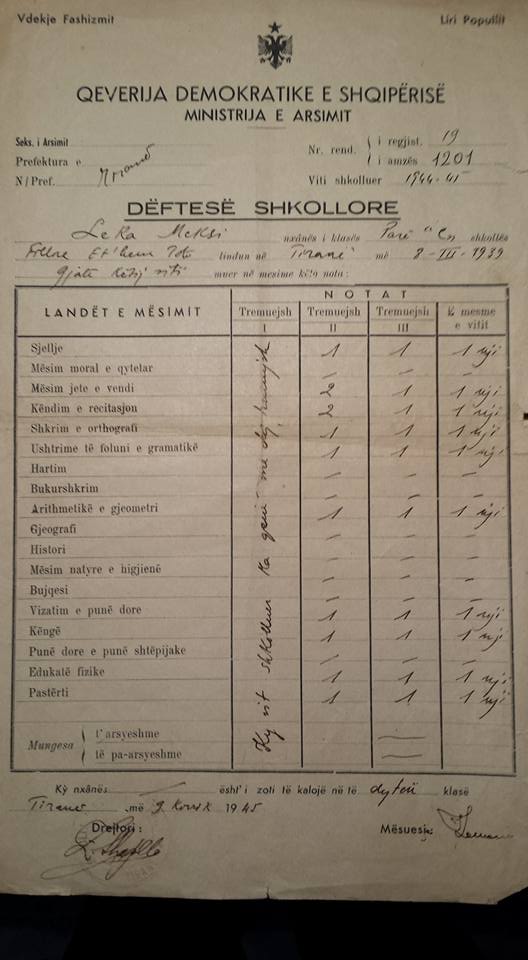 Vdekje Fashizmit Liri Popullit
QEVERIJA DEMOKRATIKE E SHQIPËRISË
MINISTRIJA E ARSIMIT
Seks. i Arsimit
Prefektura e
N/Pref. Tiranë
Nr. rend. i regjist. 19
i amzës 1201
Viti shkolluer 1944-45
DËFTESË SHKOLLORE
Leka Meksi nxânës i klasës Parë "C" shkollës
Fillore Et'hem Toto lindun në Tiranë më 8-III-1939
gjatë këtij viti muer në mesime këto nota:
LANDËT E MËSIMIT
NOTAT
Tremuejsh I Tremuejsh II Tremuejsh III e mesme e vitit
Ky vit shkolluer ka qenë me dy tremujsh
Sjellje 1 1 1 nji
Mësim moral e qytetar — — —
Mësim jete e vendi 2 1 1 nji
Këndim e recitasjon 2 1 1 nji
Shkrim e orthografi 1 1 1 nji
Ushtrime të foluni e gramatikë 1 1 1 nji
Hartim — — —
Bukurshkrim — — —
Arithmetikë e gjeometri 1 1 1 nji
Gjeografi — — —
Histori — — —
Mësim natyre e higjienë — — —
Bujqesi — — —
Vizatim e punë dore 1 1 1 nji
Këngë 1 1 1 nji
Punë dore e punë shtëpijake — — —
Edukatë fizike 1 1 1 nji
Pastërti 1 1 1 nji
Mungesa t'arsyeshme —
të pa-arsyeshme —
Ky nxânës — âsht' i zoti të kalojë në të dytën klasë
Tiranë më 9 1945
Drejtori: Mësuesi: